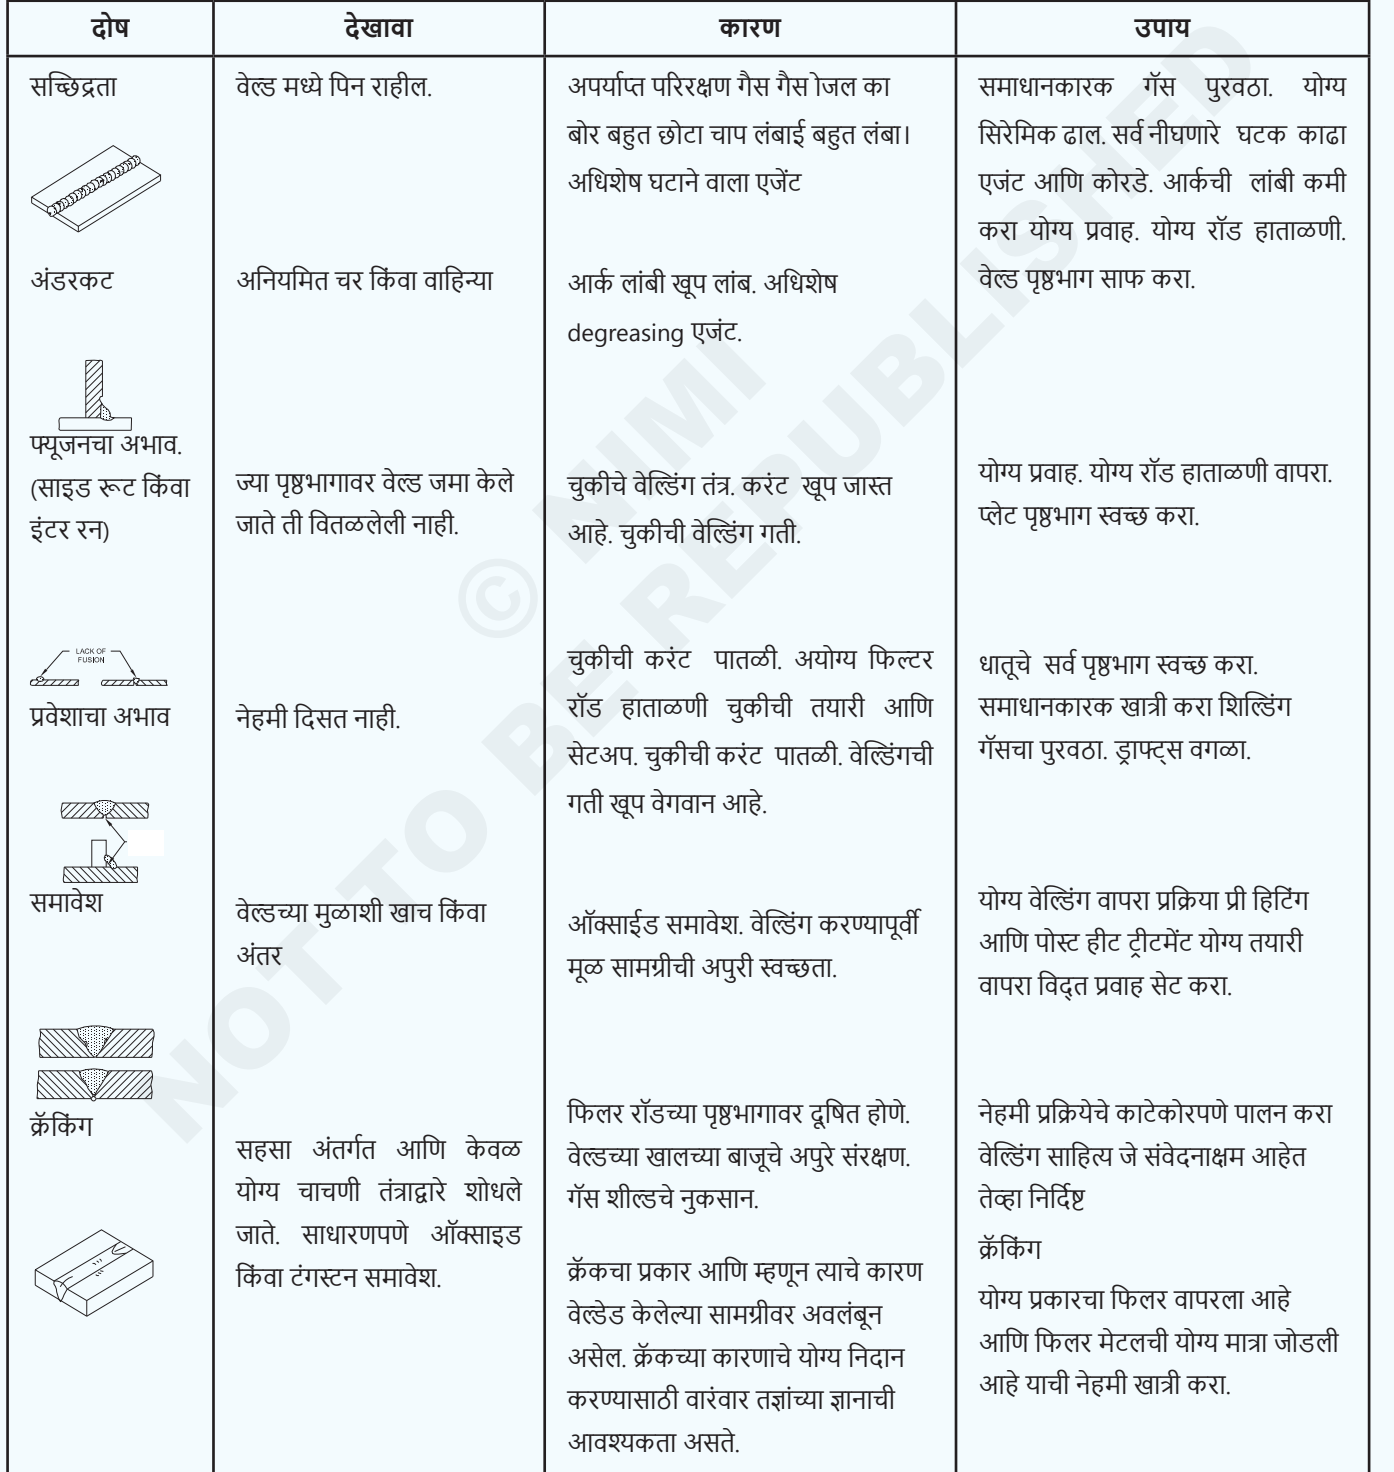 दोष
देखावा
कारण
उपाय
सच्छिद्रता
वेल्ड मध्ये पिन राहील.
अपर्याप्त परिरक्षण गैस गैस ोजल का
बोर बहुत छोटा चाप लंबाई बहुत लंबा।
अधिशेष घटाने वाला एजेंट
समाधानकारक गॅस पुरवठा. योग्य
सिरेमिक ढाल. सर्व नीघणारे घटक काढा
एजंट आणि कोरडे. आर्कची लांबी कमी
करा योग्य प्रवाह. योग्य रॉड हाताळणी.
वेल्ड पृष्ठभाग साफ करा.
अंडरकट
अनियमित चर किंवा वाहिन्या
आर्क लांबी खूप लांब. अधिशेष
degreasing एजंट.
फ्यूजनचा अभाव.
(साइड रूट किंवा
इंटर रन)
ज्या पृष्ठभागावर वेल्ड जमा केले
जाते ती वितळलेली नाही.
चुकीचे वेल्डिंग तंत्र. करंट खूप जास्त
आहे. चुकीची वेल्डिंग गती.
योग्य प्रवाह. योग्य रॉड हाताळणी वापरा.
प्लेट पृष्ठभाग स्वच्छ करा.
LACK OF
FUSION
प्रवेशाचा अभाव
नेहमी दिसत नाही.
चुकीची करंट पातळी. अयोग्य फिल्टर
रॉड हाताळणी चुकीची तयारी आणि
सेटअप. चुकीची करंट पातळी. वेल्डिंगची
गती खूप वेगवान आहे.
धातूचे सर्व पृष्ठभाग स्वच्छ करा.
समाधानकारक खात्री करा शिल्डिंग
गॅसचा पुरवठा. ड्राफ्ट्स वगळा.
समावेश
वेल्डच्या मुळाशी खाच किंवा
अंतर
ऑक्साईड समावेश. वेल्डिंग करण्यापूर्वी
मूळ सामग्रीची अपुरी स्वच्छता.
योग्य वेल्डिंग वापरा प्रक्रिया प्री हिटिंग
आणि पोस्ट हीट ट्रीटमेंट योग्य तयारी
वापरा विद्त प्रवाह सेट करा.
क्रॅकिंग
सहसा अंतर्गत आणि केवळ
योग्य चाचणी तंत्राद्वारे शोधले
जाते. साधारणपणे ऑक्साइड
किंवा टंगस्टन समावेश.
फिलर रॉडच्या पृष्ठभागावर दूषित होणे.
वेल्डच्या खालच्या बाजूचे अपुरे संरक्षण.
गॅस शील्डचे नुकसान.
क्रॅकचा प्रकार आणि म्हणून त्याचे कारण
वेल्डेड केलेल्या सामग्रीवर अवलंबून
असेल. क्रॅकच्या कारणाचे योग्य निदान
करण्यासाठी वारंवार तज्ञांच्या ज्ञानाची
आवश्यकता असते.
नेहमी प्रक्रियेचे काटेकोरपणे पालन करा
वेल्डिंग साहित्य जे संवेदनाक्षम आहेत
तेव्हा निर्दिष्ट
क्रॅकिंग
योग्य प्रकारचा फिलर वापरला आहे
आणि फिलर मेटलची योग्य मात्रा जोडली
आहे याची नेहमी खात्री करा.
© NIMI
NOT TO BE REPUBLISHED